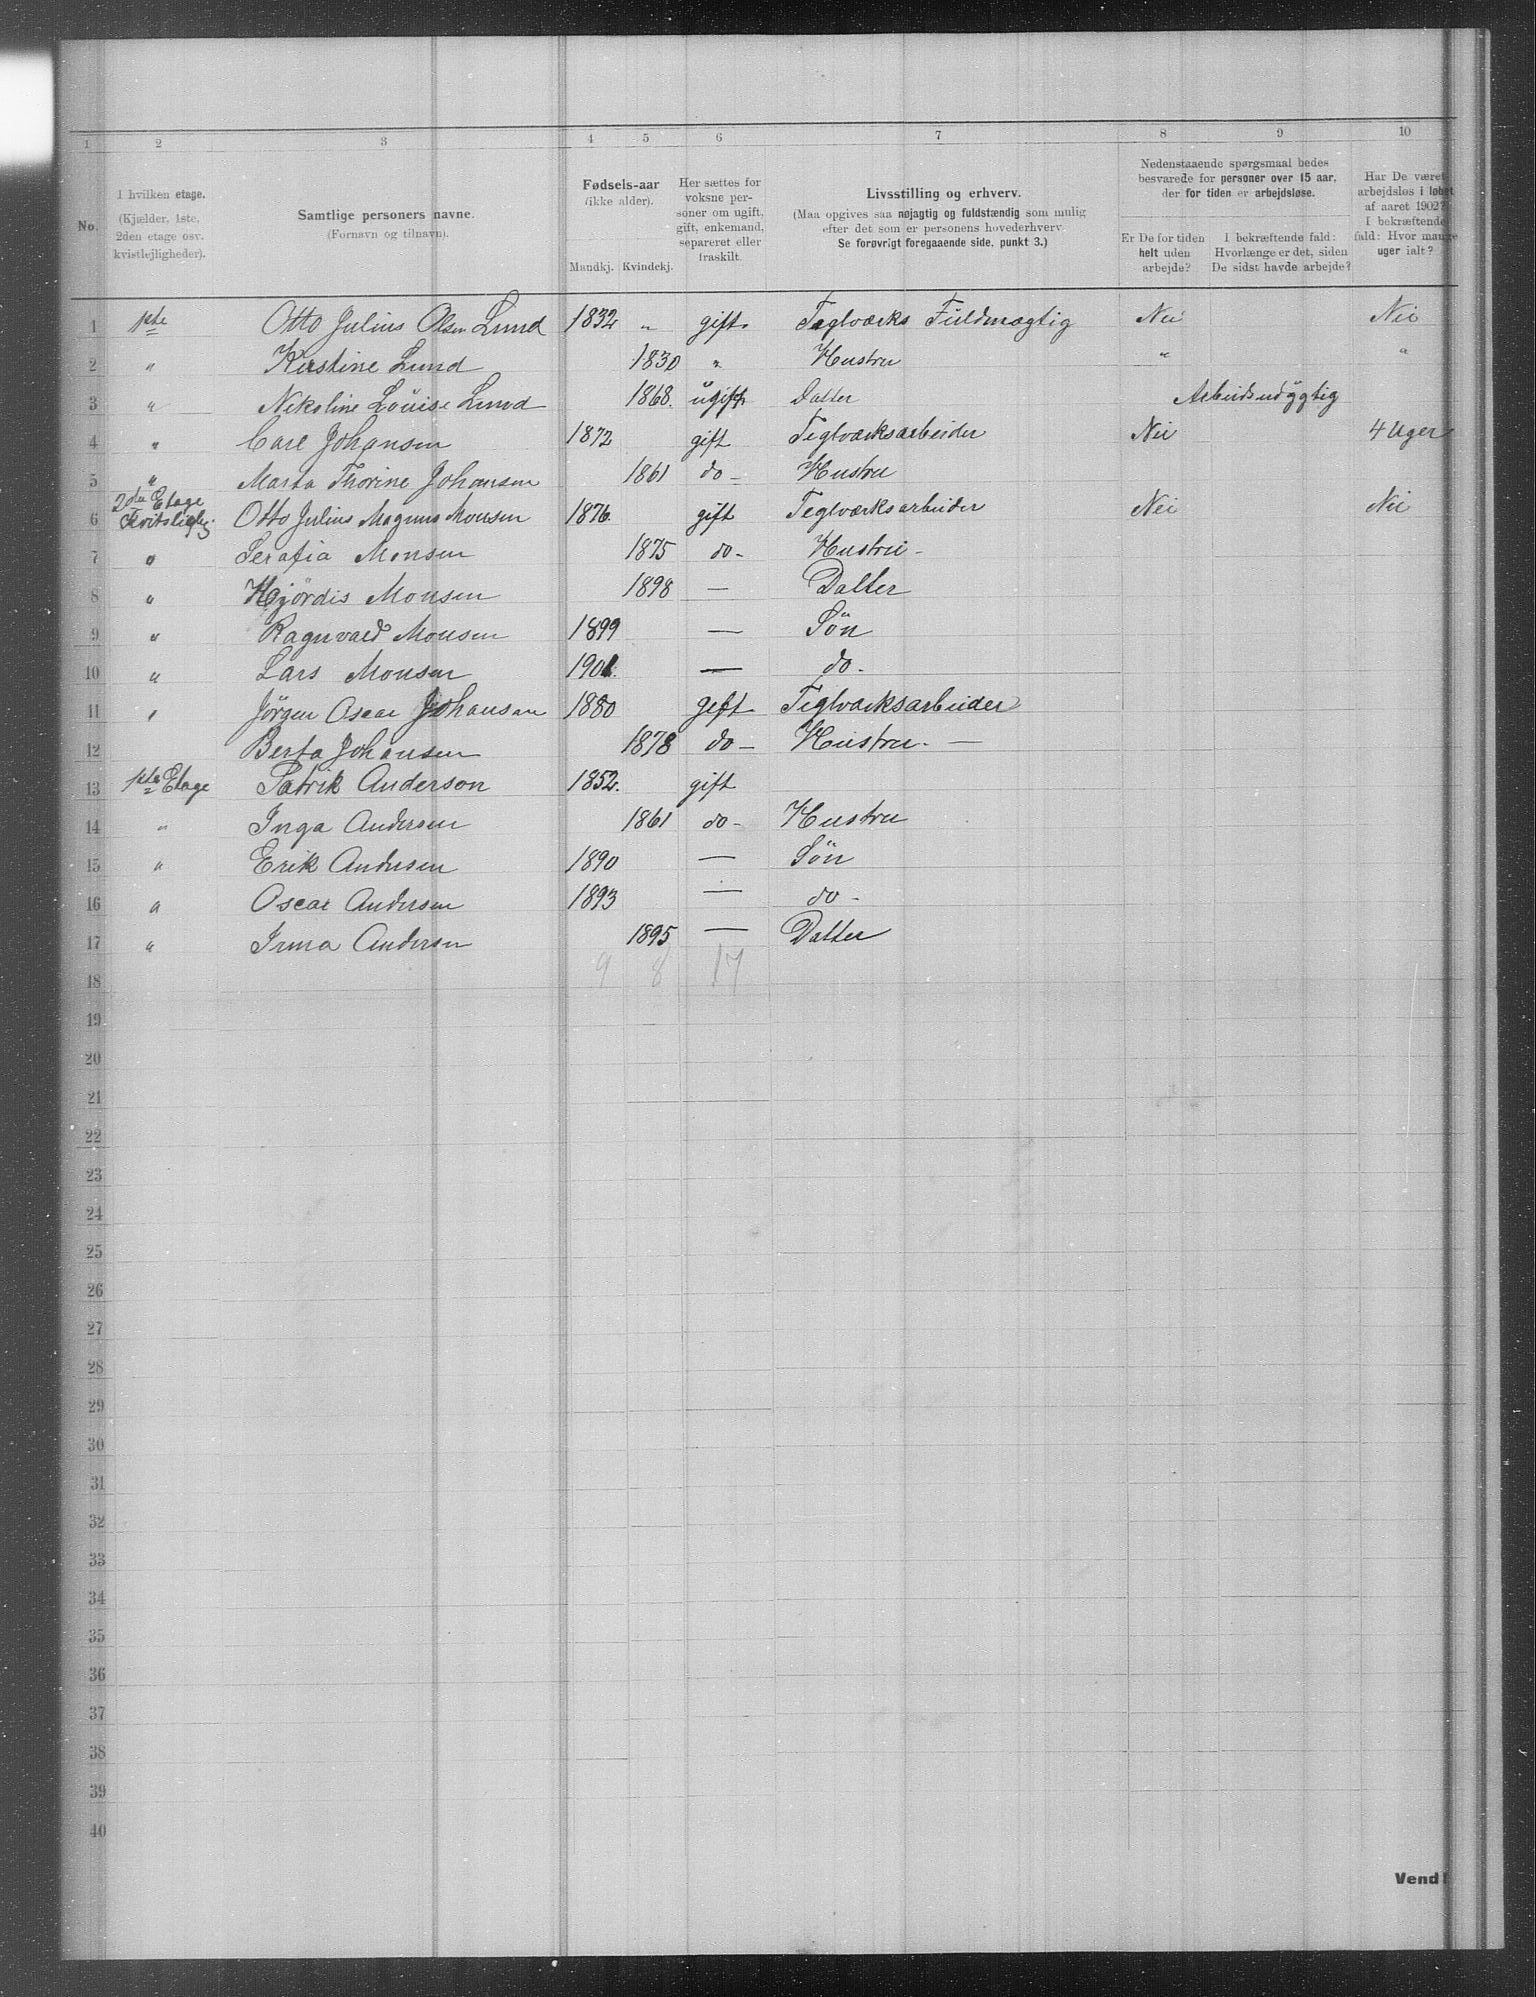 1 2 3 4 5 6 7 8 9 10
No.
I hvilken etage.
(Kjælder, 1ste,
2den etage osv.
kvistlejligheder).
Samtlige personers navne.
(Fornavn og tilnavn).
Fødsels-aar
(ikke alder).
Mandkj. Kvindekj.
Her sættes for
voksne per-
soner om ugift,
gift, enkemand,
separeret eller
fraskilt.
Livsstilling og erhverv.
(Maa opgives saa nøjagtig og fuldstændig som mulig
efter det som er personens hovederhverv.
Se forøvrigt foregaaende side, punkt 3.)
Nedenstaaende spørgsmaal bedes
besvarede for personer over 15 aar,
der for tiden er arbejdsløse.
Er De for tiden
helt uden
arbejde?
I bekræftende fald:
Hvorlænge er det, siden
De sidst havde arbejde?
Har De været
arbejdsløs i løbet
af aaret 1902?
I bekræftende
fald: Hvor mange
uger ialt?
1 1ste Otto Julius Olsen Lund 1832 " gift Teglværks Fuldmægtig Nei Nei
2 " Kirstine Lund 1830 " Hustru " "
3 " Nikoline Louise Lund 1868. ugift Datter Arbeidsudygtig
4 " Carl Johansen 1872 gift Teglværksarbeider Nei 4 Uger
5 " Marta Thorine Johansen 1861 do - Hustru
2den Etage
6 Otto Julius Magnus Monsen 1876. gift Teglværksarbeider Nei Nei
7 " Serafia Monsen 1875 do - Hustru -
8 " Hjördis Monsen 1898 — Datter
9 " Ragnvald Monsen 1899 — Sön
10 " Lars Monsen 1901. — do -
11 " Jörgen Oscar Johansen 1880 gift Teglværksarbeider
12 Berta Johansen 1878 do - Hustru. —
13 1ste Etage Patrik Anderson 1852. gift
14 " Inga Andersen 1861 do - Hustru
15 " Erik Andersen 1890 — Sön
16 " Oscar Andersen 1893 — do -
17 " Irma Andersen 1895 — Datter
18 9 8 17
19
20
21
22
23
24
25
26
27
28
29
30
31
32
33
34
35
36
37
38
39
40
Vend!